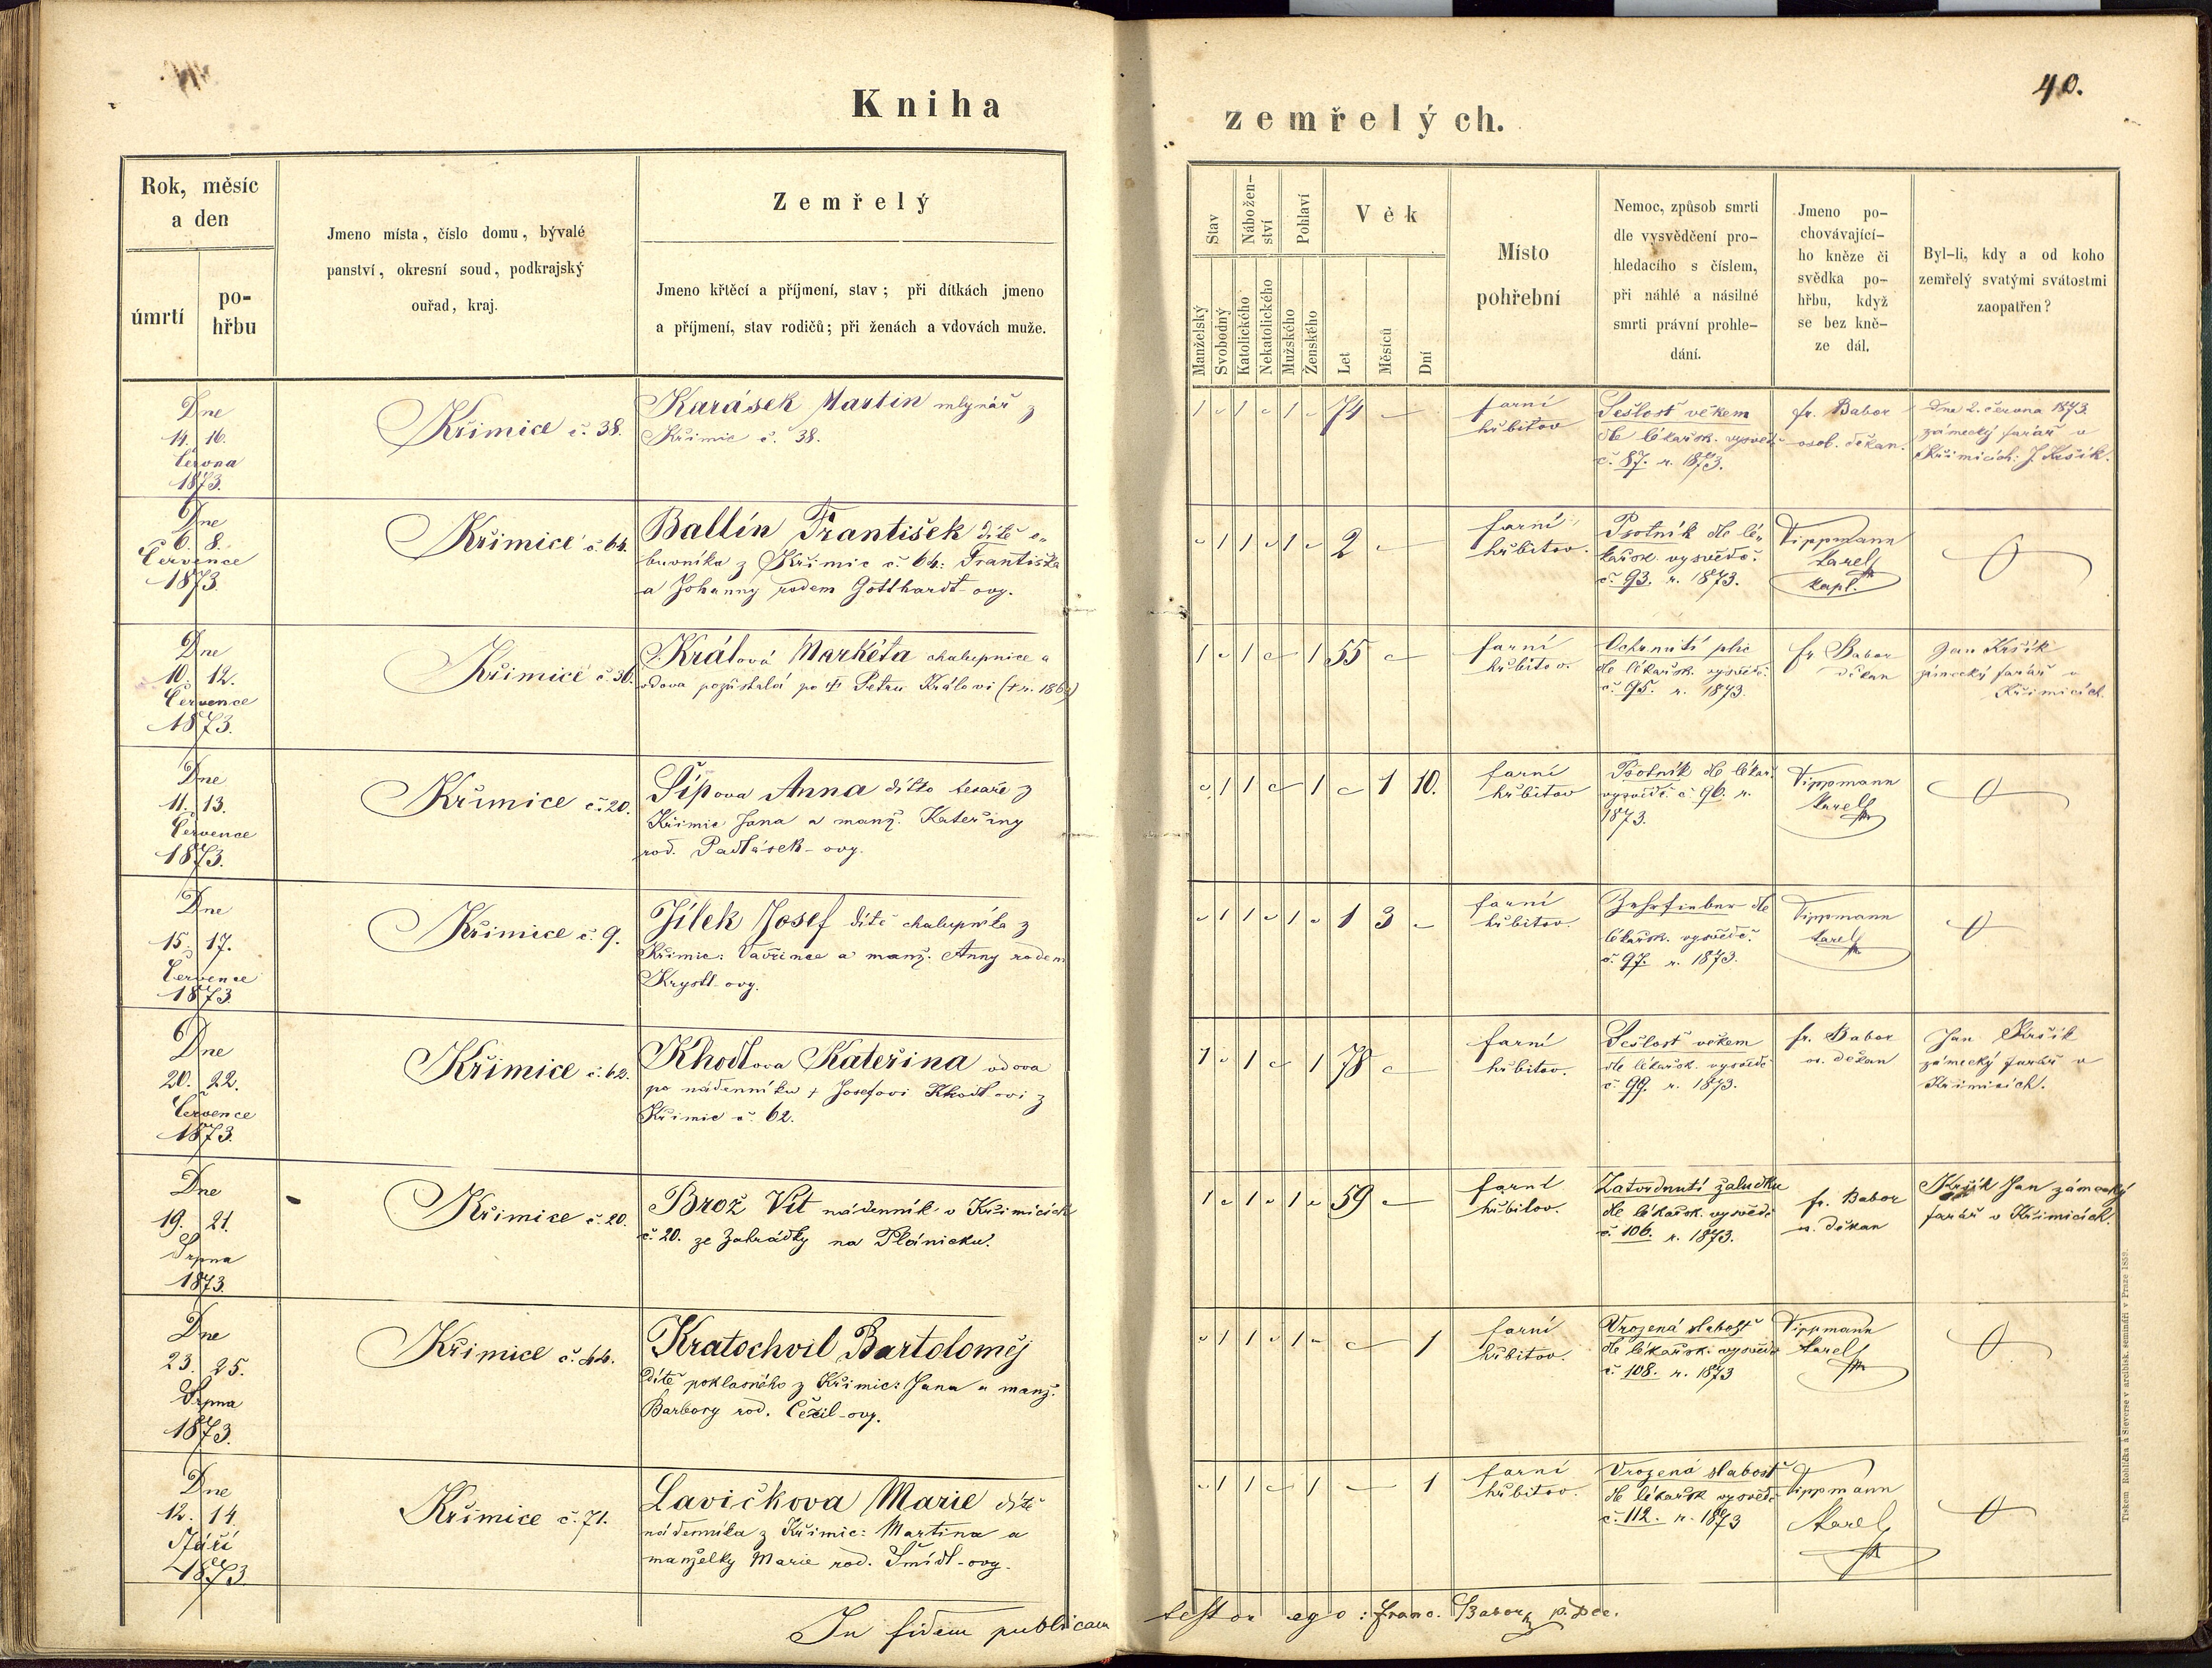 40.
Kniha
zemřelých.
Rok, měsíc
a den
úmrtí
po-
hřbu
Jmeno místa, číslo domu, bývalé
panství, okresní soud, podkrajský
ouřad, kraj.
Zemřelý
Jmeno křtěcí a příjmení, stav; při dítkách jmeno
a příjmení, stav rodičů; při ženách a vdovách muže.
Stav
Nábožen-
ství
Pohlaví
Věk
Manželský
Svobodný
Katolického
Nekatolického
Mužského
Ženského
Let
Měsíců
Dní
Místo
pohřební
Nemoc, způsob smrti
dle vysvědčení pro-
hledacího s číslem,
při náhlé a násilné
smrti právní prohle-
dání.
Jmeno po-
chovávající-
ho kněze či
svědka po-
hřbu, když
se bez kně-
ze dál.
Byl-li, kdy a od koho
zemřelý svatými svátostmi
zaopatřen?
Dne
14. 16.
Června
1873.
Křimice č. 38.
Karásek Martin mlynář z
Křimic č. 38.
1 1 1 74
farní
hřbitov
Sešlosť věkem
dle lékařsk. vysvěd.
č. 87. r. 1873.
fr. Babor
osob. děkan.
Dne 2. června 1873.
zámecký farář v
Křimicích: J. Kršík.
Dne
6. 8.
Července
1873
Křimice č. 64.
Ballín František dítě
z Křimic č. 64: Františka
a Johanny rodem Gotthardt-ovy.
1 1 1 2
farní
hřbitov.
Psotník dle lé-
kařsk. vysvědč.
č. 93. r. 1873.
Tippmann
Karel
kapl.
Dne
10. 12.
Července
1873.
Křimice č. 36.
Králová Markéta chalupnice a
vdova pozůstalá po Petru Královi
1 1 1 55
farní
hřbitov.
Ochrnutí plic
dle lékařsk. vysvědč.
č. 95. r. 1873.
fr. Babor
děkan
Jan Kršík
zámecký farář v
Křimicích.
Dne
11. 13.
Července
1873.
Křimice č. 20.
Šípova Anna dítko tesaře z
Křimic Jana a manž. Kateřiny
rod. Padlásek-ovy.
1 1 1 1 10.
farní
hřbitov
Psotník dle lékař.
vysvědč. č. 96. r.
1873.
Tippmann
Karel
Dne
15. 17.
Července
1873
Křimice č. 9.
Jílek Josef dítě chalupníka z
Křimic: Vavřince a manž. Anny rodem
Krystl-ovy.
1 1 1 1 3
farní
hřbitov.
Zehrfieber dle
lékařsk. vysvědč.
č. 97. r. 1873.
Tippmann
Karel
Dne
20. 22.
Července
1873.
Křimice č. 62.
Khodlova Kateřina vdova
po nádenníku + Josefovi Khodlovi z
Křimic č. 62.
1 1 1 78
farní
hřbitov.
Sešlosť věkem
dle lékařsk. vysvědč
č. 99. r. 1873.
fr. Babor
os. děkan
Jan Kršík
zámecký farář v
Křimicích.
Dne
19. 21.
Srpna
1873
Křimice č. 20.
Brož Vít nádenník v Křimicích
č. 20. ze Zahrádky na Plánicku.
1 1 1 59
farní
hřbitov.
Zatvrdnutí žaludku
dle lékařsk. vysvědč
č. 106. r. 1873.
fr. Babor
o. děkan
Kršík Jan zámecký
farář v Křimicích.
Dne
23. 25.
Srpna
1873.
Křimice č. 44.
Kratochvil Bartoloměj
dítě poklasného z Křimic: Jana a manž.
Barbory rod. Čežil-ovy.
1 1 1 1
farní
hřbitov.
Vrozená slabosť
dle lékařsk. vysvědč
č. 108. r. 1873
Tippmann
Karel
Dne
12. 14.
Září
1873.
Křimice č. 71.
Lavičkova Marie dítě
nádenníka z Křimic: Martina a
manželky Marie rod. Šmídl-ovy.
1 1 1 1
farní
hřbitov.
Vrozená slabosť
dle lékařsk vysvědč
č. 112. r. 1873
Tippmann
Karel
In fidem publicam testor ego: Franc. Babor p. Dec.
Tiskem Rohlíčka á Sieverse v arcibisk. semináři v Praze 1859.